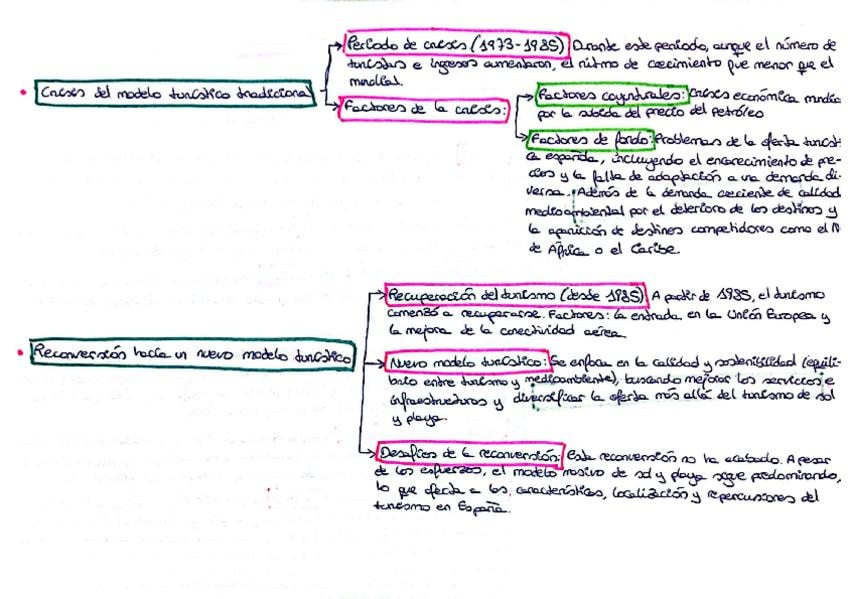 Período de crisis (1973-1985) Durante este período, aunque el número de
turistas e ingresos aumentaron, el ritmo de crecimiento fue menor que el
mundial.
• Crisis del modelo turístico tradicional
Factores de la crisis:
Factores coyunturales: Crisis económica mundia
por la subida del precio del petróleo
Factores de fondo: Problemas de la oferta turíst
ca española, incluyendo el encarecimiento de pre-
cios y la falta de adaptación a una demanda di-
versa. Además de la demanda creciente de calidad
medioambiental por el deterioro de los destinos y
la aparición de destinos competidores como el N
de África o el Caribe.
Recuperación del turismo (desde 1985) A partir de 1985, el turismo
comenzó a recuperarse. Factores: la entrada en la Unión Europea y
la mejora de la conectividad aérea.
• Reconversión hacia un nuevo modelo turístico
Nuevo modelo turístico: Se enfoca en la calidad y sostenibilidad (equili-
brio entre turismo y medioambiente), buscando mejorar los servicios e
infraestructuras y diversificar la oferta más allá del turismo de sol
y playa.
Desafíos de la reconversión: Esta reconversión no ha acabado. A pesar
de los esfuerzos, el modelo masivo de sol y playa sigue predominando,
lo que afecta a las características, localización y repercusiones del
turismo en España.